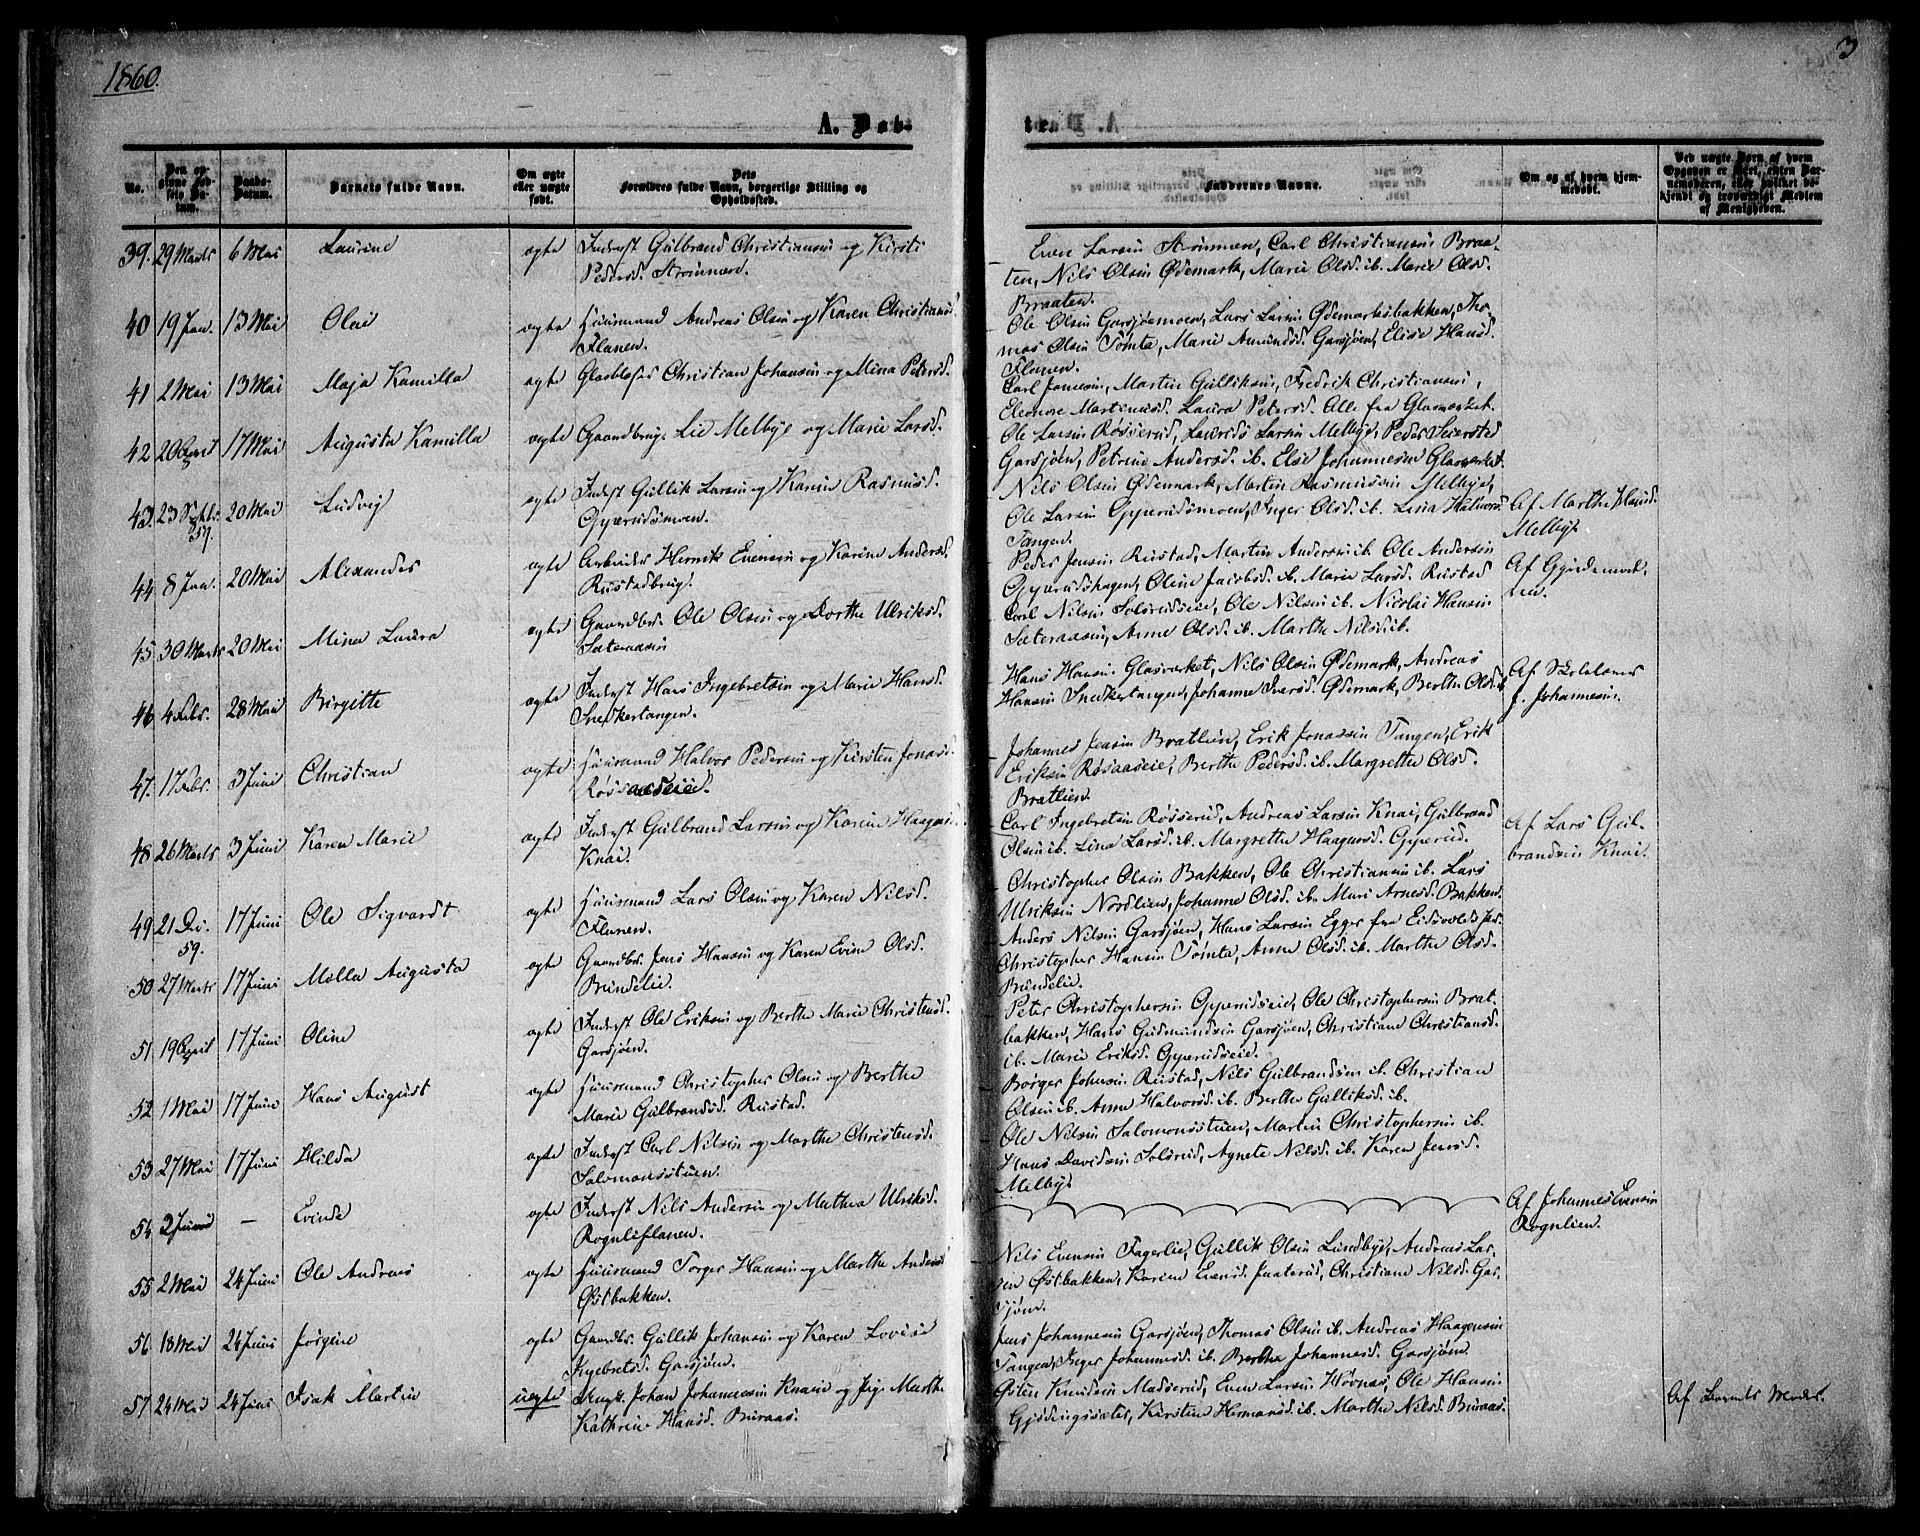 1860.
3
A. Døb-
te.
No.
Den opgivne Fødsels Datum.
Daabs-Datum.
Barnets fulde Navn.
Om ægte eller uægte født.
Dets Forældres fulde Navn, borgerlige Stilling og Opholdssted.
Faddernes Navne.
Om og af hvem hjemmedøbt.
Ved uægte Børn af hvem Opgaven er skeet, enten Barnemoderen, eller hvilket bekjendt og troværdigt Medlem af Menigheden.
39. 29 Marts 6 Mai Laurine ægte Inderst Gulbrand Christiansen og Kirsti
Pedersd. Strømnæs.
Even Larsen Strømnæs, Carl Christiansen Braa-
ten, Nils Olsen Ødemark, Marie Olsd. ib. Marie Olsd.
Braaten.
40 19 Jan. 13 Mai Olai ægte Huusmand Andreas Olsen og Karen Christiansd.
Flanen.
Ole Olsen Garsjøemoen, Lars Larsen Ødemarksbakken, Tho-
mas Olsen Tømta, Marie Amundsd. Garsjøen, Elise Hansd.
Flanen.
41 2 Mai 13 Mai Maja Kamilla ægte Glasblæser Christian Johansen og Mina Petersd.
Carl Jansen, Martin Gulliksen, Fredrik Christiansen,
Eleonore Martinusd. Laura Petersd. Alle fra Glasværket.
42 20 April 17 Mai Augusta Kamilla ægte Gaardbruger Lie Melbye og Marie Larsd.
Ole Larsen Røsserud, Laurids Larsen Melbye, Peder Seiersted
Garsjøen, Petrine Andersd. ib. Else Johannesen Glasværket.
43. 23 Septbr. 59. 20 Mai Ludvig ægte Inderst Gullik Larsen og Karen Rasmusd.
Gyperudsmoen.
Nils Olsen Ødemark, Martin Rasmussen Melbye,
Ole Larsen Gyperudsmoen, Inger Olsd. ib. Lina Halvorsd.
Tangen.
Af Marthe Hansd.
Melbye
44 8 Jan. 20 Mai Alexander ægte Arbeider Henrik Evensen og Karine Andersd.
Rustadbrug.
Peder Jensen Rustad, Martin Andersen ib. Ole Andersen
Gyperudshagen, Oline Jacobsd. ib. Marie Larsd. Rustad
Af Gjordemod-
ren.
45 30 Marts 20 Mai Mina Laura ægte Gaardbr. Ole Olsen og Dorthe Ulriksd.
Sæteraasen
Carl Nilsen Solserudeie, Ole Nilsen ib. Nicolai Hansen
Sæteraasen, Anne Olsd. ib. Marthe Nilsd. ib.
46 4 Febr. 28 Mai Birgitte ægte Inderst Hans Ingebretsen og Marie Hansd.
Snekkertangen.
Hans Hansen Glasværket, Nils Olsen Ødemark, Andreas
Hansen Snekkertangen, Johanne Iversd. Ødemark, Berthe Olsd. ib.
Af Skolelærer
J. Johannesen.
47. 17 Febr. 3 Juni Christian ægte Huusmand Halvor Pedersen og Kirsten Jonasd.
Røsaaseie.
Johannes Jensen Bratlien, Erik Jonassen Tangen, Erik
Eriksen Røsaaseie, Berthe Pedersd. ib. Margrethe Olsd.
Bratlien.
48 26 Marts 3 Juni Karen Marie ægte Inderst Gulbrand Larsen og Karine Haagensd.
Knai.
Carl Ingebretsen Røsserud, Andreas Larsen Knai, Gulbrand
Olsen ib. Lina Larsd. ib. Margrethe Haagensd. Gyperud.
Af Lars Gul-
brandsen Knai.
49 21 De. 59. 17 Juni Ole Sigvardt ægte Huusmand Lars Olsen og Karen Nilsd.
Flanen.
Christopher Olsen Bakken, Ole Christiansen ib. Lars
Ulriksen Nordlien, Johanne Olsd. ib. Mari Arnesd. Bakken.
50 27 Marts 17 Juni Molla Augusta ægte Gaardbr. Jens Hansen og Karen Evine Olsd.
Bundelie.
Anders Nilsen Garsjøen, Hans Larsen Egger fra Eidsvolds Pgd.
Christopher Hansen Tømta, Anne Olsd. ib. Marthe Olsd.
Bundelie.
51 19 April 17 Juni Oline ægte Inderst Ole Eriksen og Berthe Marie Christensd.
Garsjøen.
Peter Christophersen Gyperudseie, Ole Christophersen Brat-
bakken, Hans Gudmundsen Garsjøen, Christiane Christiansd.
ib. Marie Eriksd. Gyperudseie.
52 1 Mai 17 Juni Hans August ægte Huusmand Christopher Olsen og Berthe
Marie Gulbrandsd. Rustad.
Børger Johnsen Rustad, Nils Gulbrandsen ib. Christian
Olsen ib. Anne Halvorsd. ib. Berthe Gulliksd. ib.
53 27 Mai 17 Juni Hilda ægte Inderst Carl Nilsen og Marthe Christensd.
Salomonsstuen.
Ole Nilsen Salomonsstuen, Martin Christophersen ib.
Hans Davidsen Solserud, Agnete Nilsd. ib. Karen Jensd.
Melbye
54 2 Juni – Evinde ægte Inderst Nils Andersen og Mathea Ulriksd.
Rognliflanen.
Af Johannes Evensen
Rognlien.
55 2 Mai 24 Juni Ole Andreas ægte Huusmand Torger Hansen og Marthe Andersd.
Østbakken.
Nils Evensen Fagerlie, Gullik Olsen Lundbye, Andreas Lar-
sen Østbakken, Karine Evensd. Christiane Nilsd. Gar-
sjøen.
56 18 Mai 24 Juni Jørgine ægte Gaardbr. Gullik Johansen og Karen Lovise
Ingebretsd. Garsjøen.
Jens Johannesen Garsjøen, Thomas Olsen ib. Andreas Haagensen
Tangen, Inger Johannesd. ib. Berthe Johannesd. Garsjøen
57 24 Mai 24 Juni Isak Martin uægte Ungk. Johan Johannesen Knaie og Pige Marthe
Kathrine Hansd. Buraas.
Østen Knudsen Madserud, Even Larsen Høvnæs, Ole Hansen
Gjødingssæter, Kirsten Hermansd. ib. Marthe Nilsd. Buraas.
Af Barnets Moder.